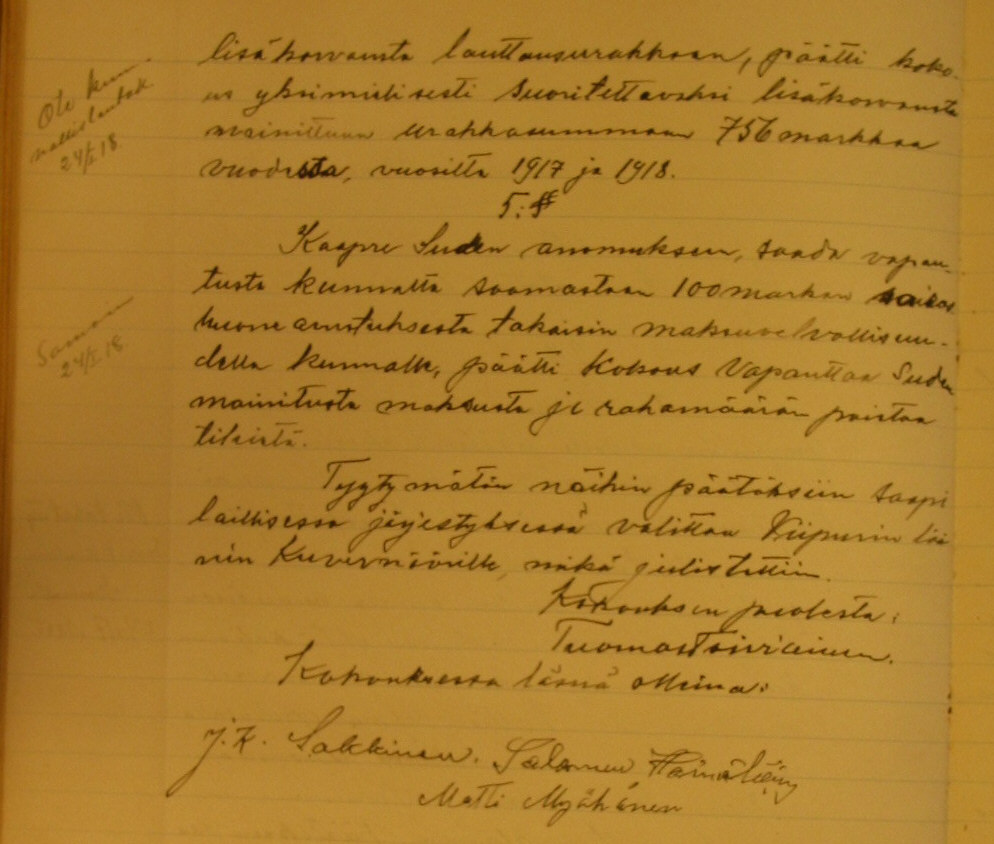 lisäkorvausta lauttausurakkaan, päätti koko-
us yksimielisesti suoritettavaksi lisäkorvausta
mainittuun urakkasummaan 756 markkaa
vuodesta, vuosilta 1917 ja 1918.
5:§
Kaapre Suden anomuksen, saada vapau-
tusta kunnalta saamastaan 100 markan sairas
huone avustuksesta takaisin maksuvelvollisuu-
della kunnalle, päätti Kokous Vapauttaa Suden
mainitusta maksusta ja rahamäärän poistaa
tileistä.
Tyytymätön näihin päätöksiin saapi
laillisessa järjestyksessä valittaa Viipurin lää
nin Kuvernöörille, mikä julistettiin.
Kokouksen puolesta:
Tuomas Toiviainen.
Kokouksessa läsnä olleina:
J. K. Sakkinen. Salomon Hämäläinen
Matti Myöhänen
24/I 18
Samoin
24/I 18